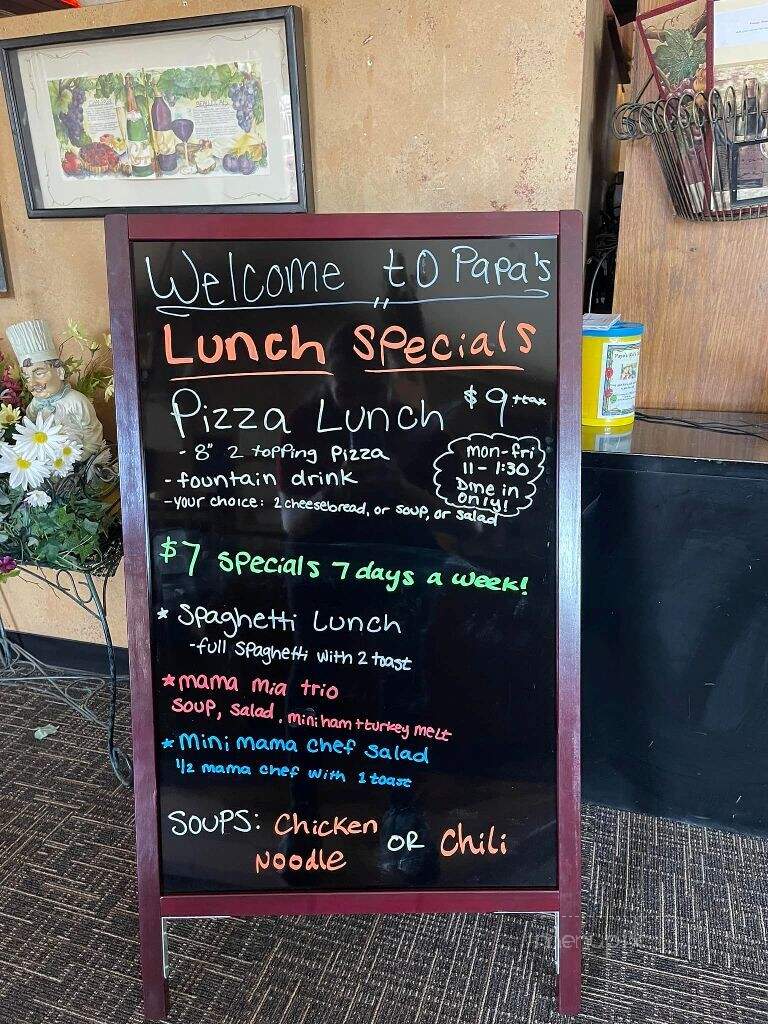 Welcome to Papa's
Lunch Specials
Pizza Lunch $9 +tax
- 8" 2 topping Pizza
- fountain drink
- your choice: 2 cheesebread, or soup, or salad
mon-fri
11 - 1:30
Dine in
only!
$7 specials 7 days a week!
* Spaghetti Lunch
- full spaghetti with 2 toast
* mama mia trio
soup, salad, mini ham + turkey melt
* Mini mama chef salad
1/2 mama chef with 1 toast
SOUPS: Chicken
Noodle
OR Chili